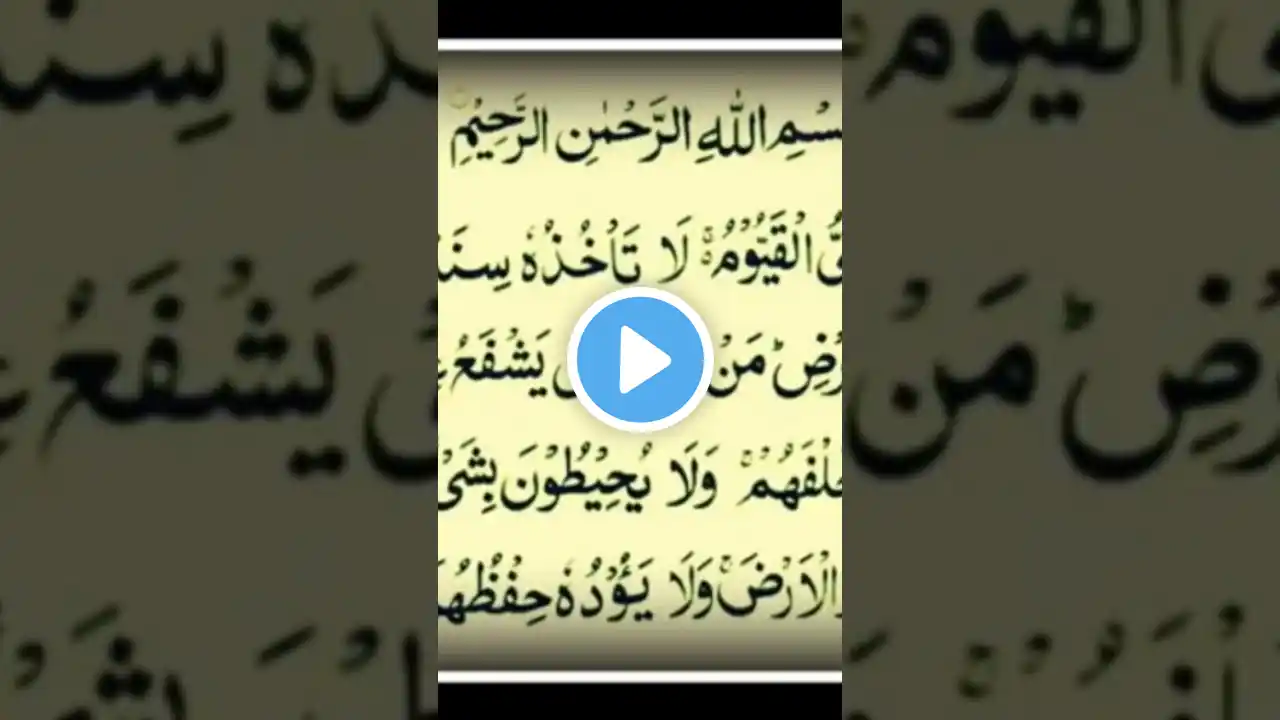 بِسْمِ اللهِ الرَّحْمٰنِ الرَّحِيْمِ
الْقَيُّوْمُ ۚ لَا تَاْخُذُهٗ سِنَ
رْضِ ؕ مَنْ يَشْفَعُ
خَلْفَهُمْ ۚ وَلَا يُحِيْطُوْنَ بِشَیْ
الْاَرْضَ ۚ وَلَا يَـُٔوْدُهٗ حِفْظُهُمَ